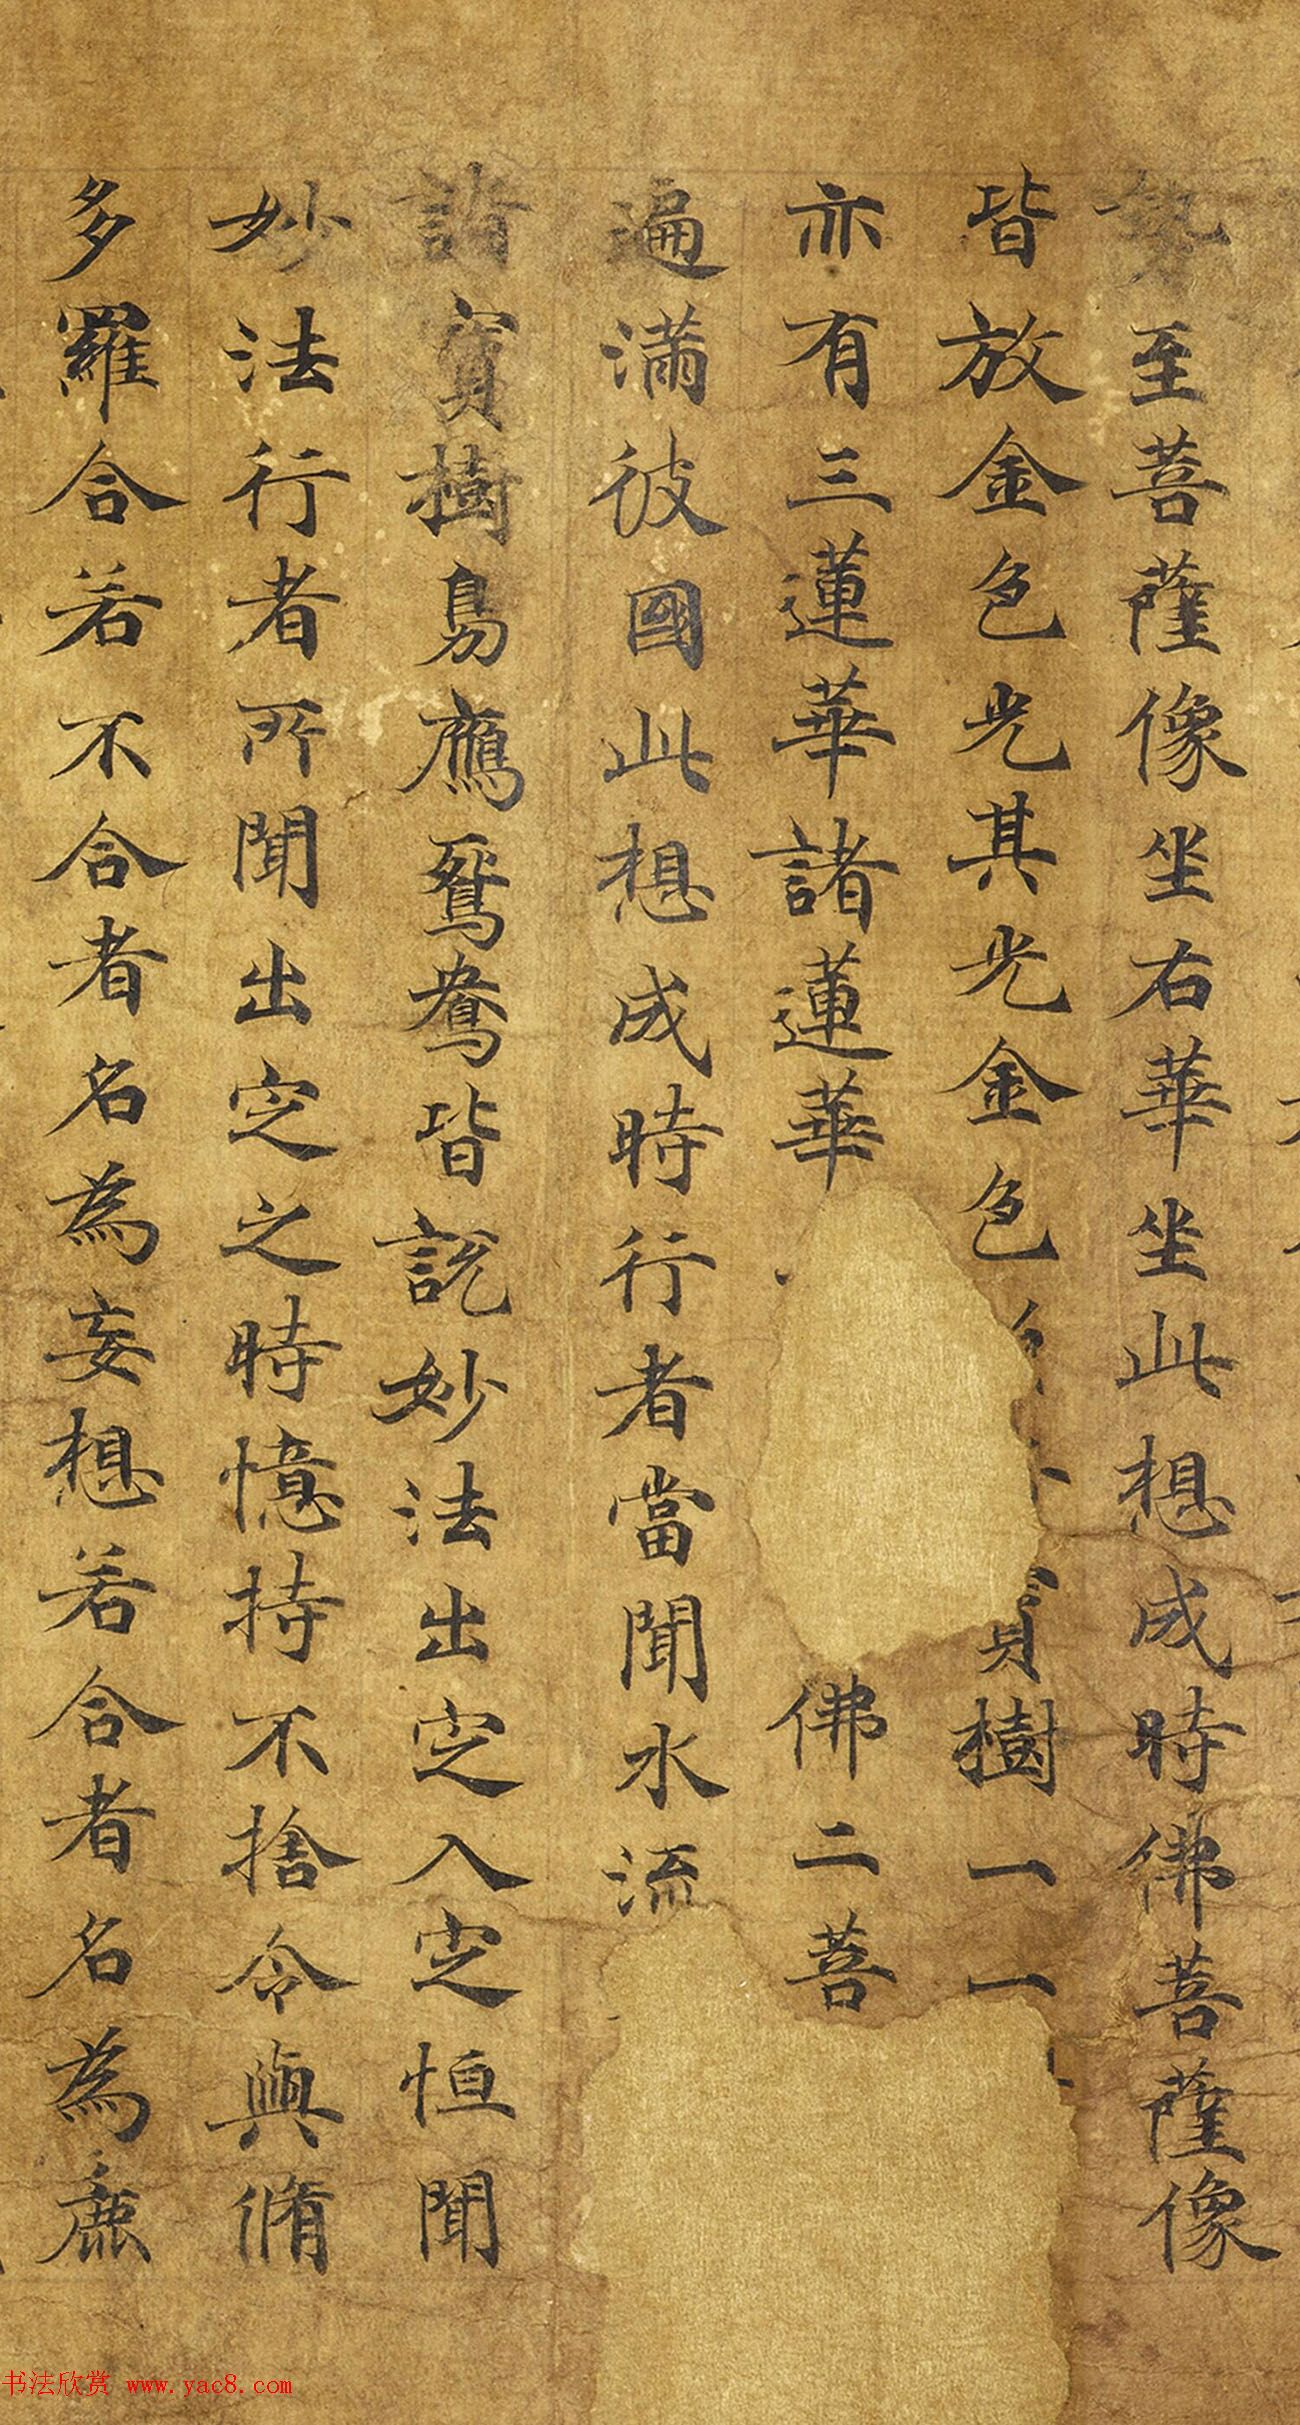 勢至菩薩像坐右華坐此想成時佛菩薩像
皆放金色光其光金色寶樹一一
亦有三蓮華諸蓮華佛二菩
遍滿彼國此想成時行者當聞水流
諸寶樹鳧鴈鴛鴦皆說妙法出定入定恒聞
妙法行者所聞出定之時憶持不捨令與脩
多羅合若不合者名為妄想若合者名為麁
书法欣赏 www.yac8.com